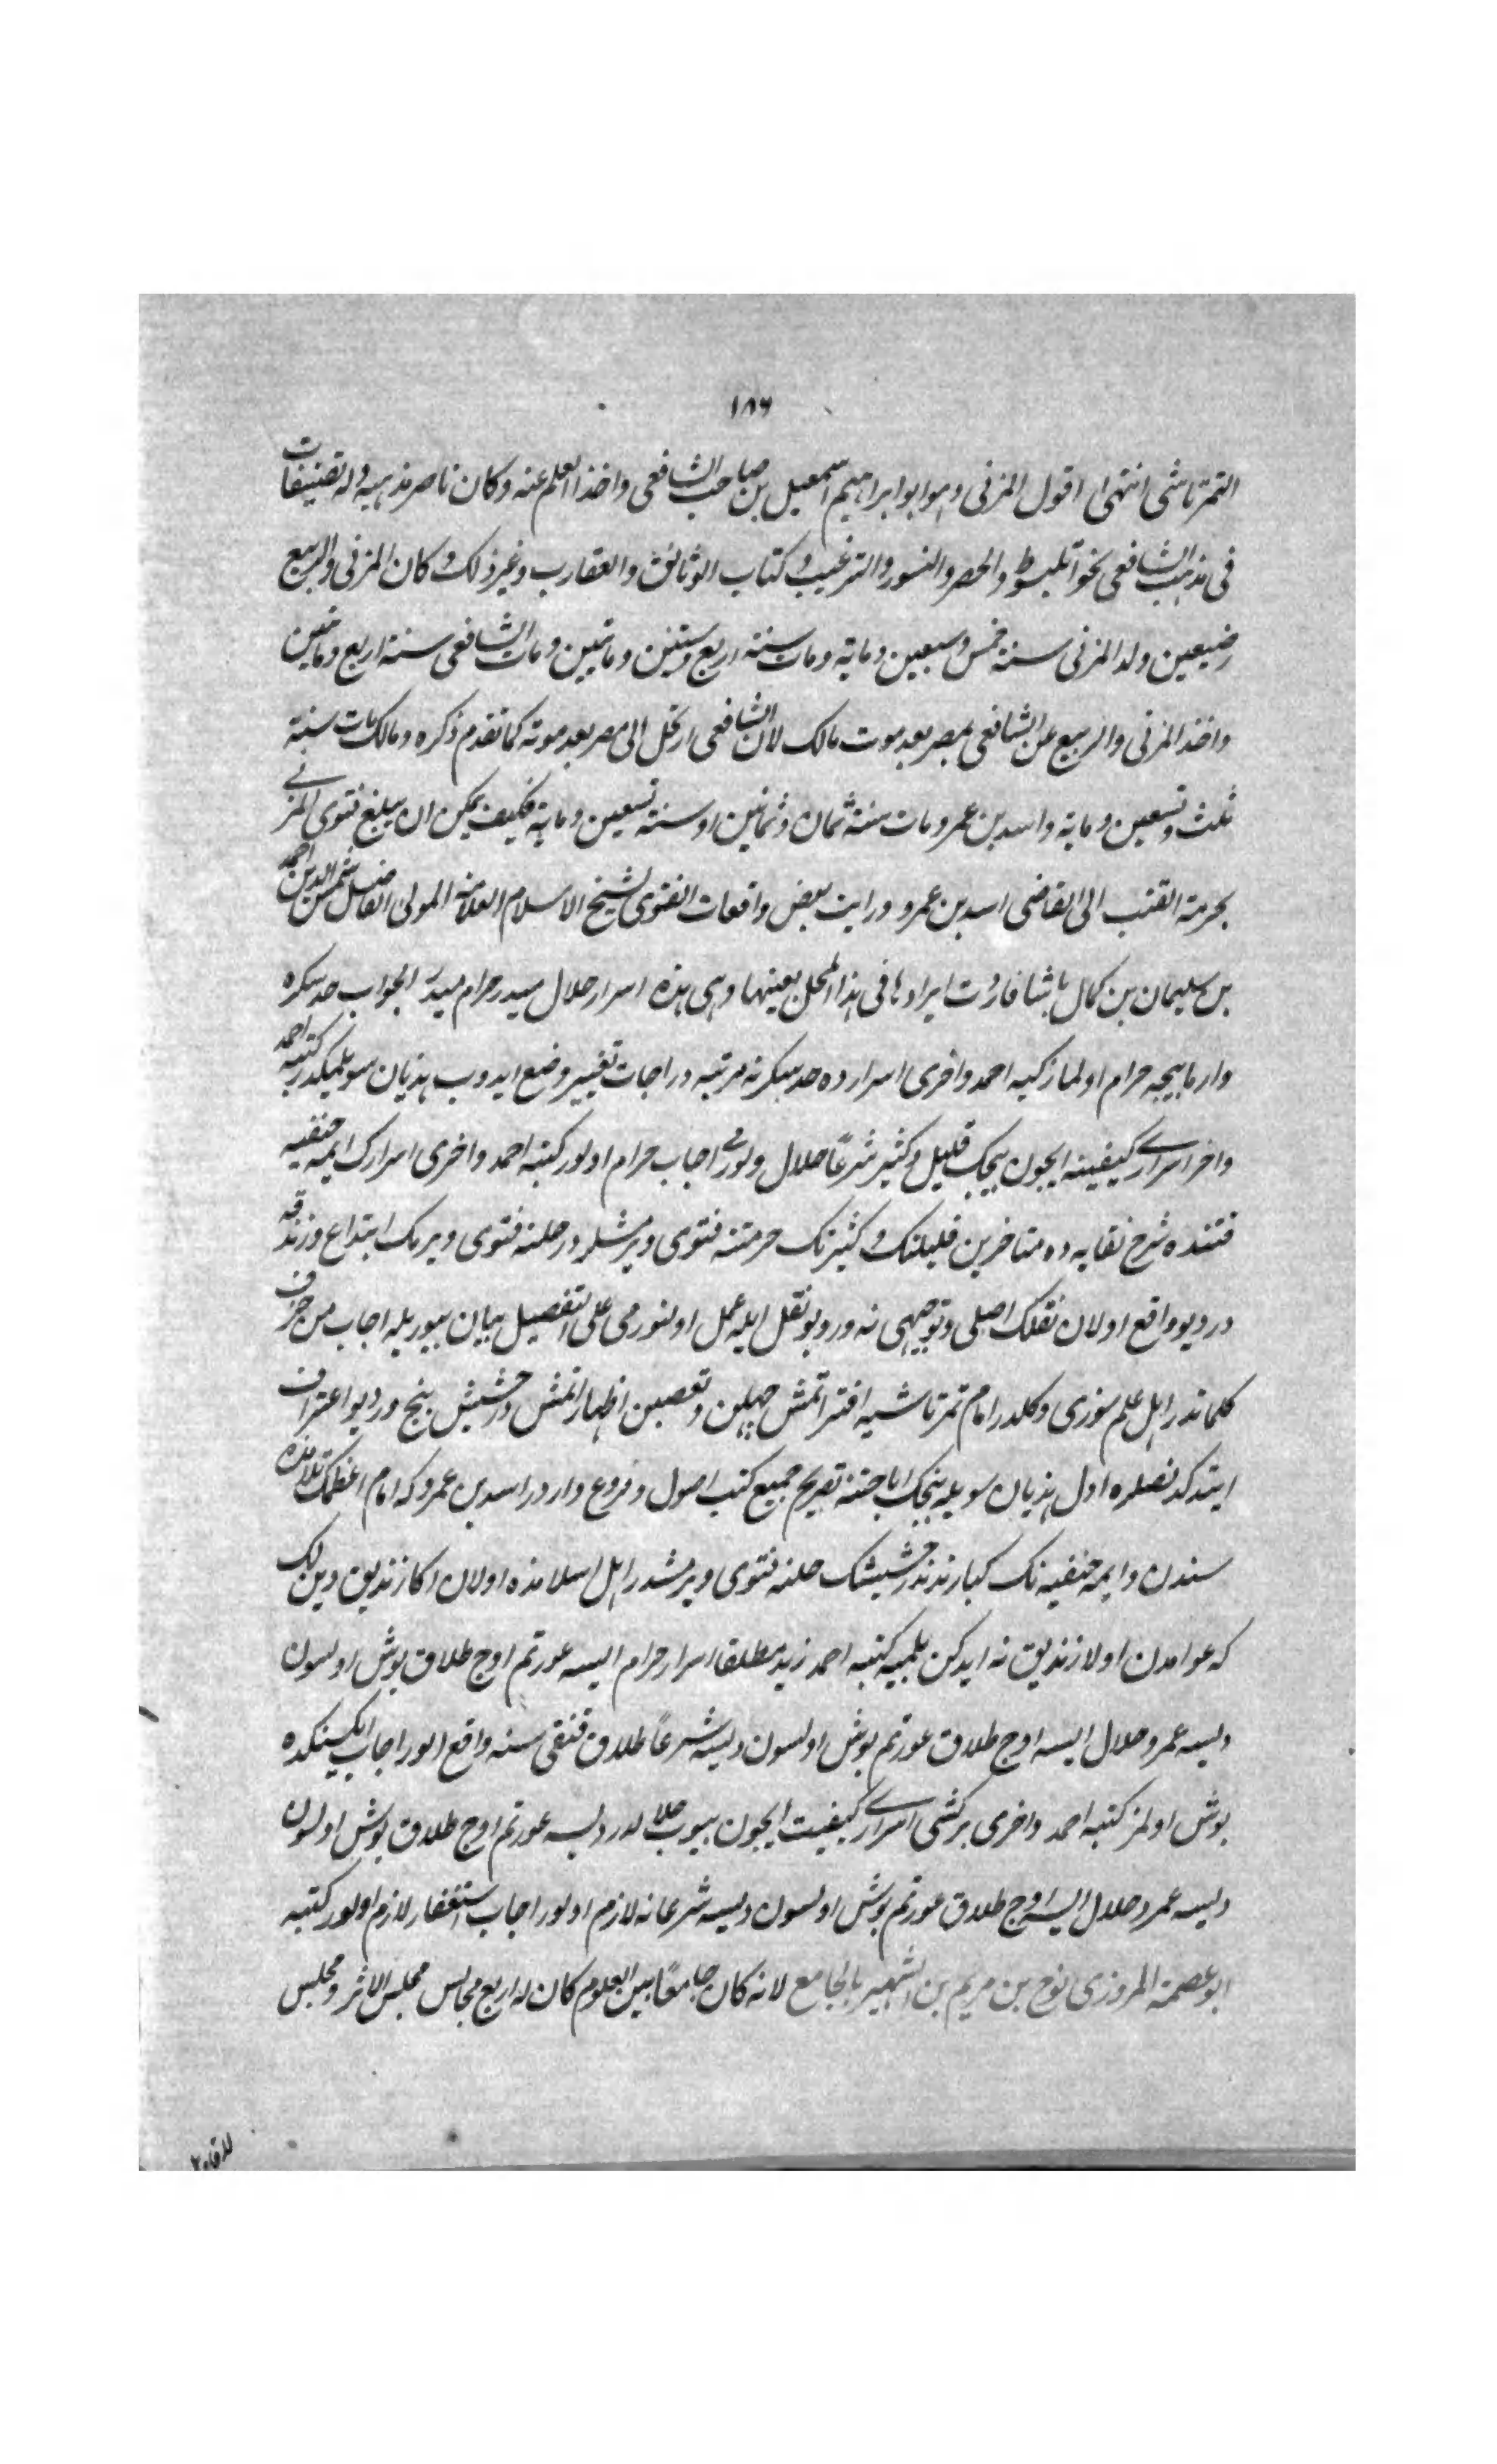 ١٨٦
التمرتاشى انتهى اقول المزنى وهو ابو ابراهيم اسمعيل بن صاحب الشافعى واخذ العلم عنه وكان ناصر مذهبه وله تصنيفات
فى مذهب الشافعى نحو والترغيب وكتاب الوثائق والعقارب وغير ذلك وكان المزنى والربيع
رضيعين ولد المزنى سنة خمس وسبعين وماية ومات سنة اربع وستين وماتين ومات الشافعى سنة اربع وماتين
واخذ المزنى والربيع عن الشافعى بمصر بعد موت مالك لان الشافعى ارتحل الى مصر بعد موته كما تقدم ذكره ومالك مات سنة
ثلث وتسعين وماية واسد بن عمرو مات سنة ثمان وثمانين او سنة تسعين وماية فكيف يمكن ان يبلغ فتوى المزنى
بحرمة القنب الى القاضى اسد بن عمرو ورايت بعض واقعات الفتوى لشيخ الاسلام العلامة المولى الفاضل شمس الدين احمد
بن سليمان بن كمال باشا فاردت ايرادها فى هذا المحل بعينها وهى هذه اسرار حلال ميدر حرام ميدر الجواب حد سكره
وارمايجه حرام اولماز كتبه احمد واخرى اسرارده حد سكر نه مرتبه در اجاب تغيير وضع ايدوب هذيان سويلمكدر كتبه احمد
واخر اسرارى كيفيته ايچون ييجك قليل وكثير شرعا حلال ولورمى اجاب حرام اولور كتبه احمد واخرى اسرارك ايمه حنفيه
قتنده شرح نقايه ده متاخرين قليلنك وكثيرنك حرمتنه فتوى ويرمشلر در حلنه فتوى ويرمك ابتداع وزندقه
در ديو واقع اولان نقلك اصلى وتوجيهى نه در وبو نقل ايله عمل اولنورمى على التفصيل بيان بيوريله اجاب من حرف
كلماتدر اهل علم سوزى دكلدر امام تمرتاشيه افترا اتمش جهلن وتعصبن اظهار اتمش در حشيش بنج در ديو اعتراف
ايتدكدنصكره اول هذيان سويله بنجك اباحتنه تصريح جميع كتب اصول وفروع واردر اسد بن عمرو كه امام اعظمك تلامذه
سندن وايمه حنفيه نك كبارندندر حشيشك حلنه فتوى ويرمشدر اهل اسلامده اولان اكا زنديق ديمن لك
كه عوامدن اولا زنديق نه ايدكن بلميه كتبه احمد زيد مطلقا اسرار حرام ايسه عورتم اوچ طلاق بوش اولسون
ديسه عمرو حلال ايسه اوچ طلاق عورتم بوش اولسون ديسه شرعا طلاق قنقى سنه واقع اولور اجاب ايكيسنكده
بوش اولمز كتبه احمد واخرى بر كشى اسرارى كيفيت ايچون ييوب حلالدر ديسه عورتم اوچ طلاق بوش اولسون
ديسه عمرو حلال ايسه اوچ طلاق عورتم بوش اولسون ديسه شرعا نه لازم اولور اجاب استغفار لازم اولور كتبه
ابو عصمة المروزى نوح بن مريم بن الشهير بالجامع لانه كان جامعا بين العلوم كان له اربع مجالس مجلس الاثر ومجلس